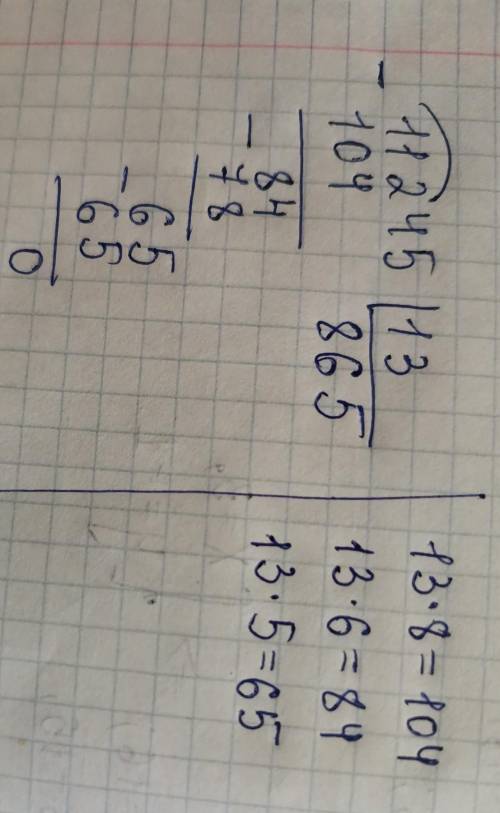 - 11245 | 13
104 865
- 84
78
- 65
65
0
13·8=104
13·6=84
13·5=65